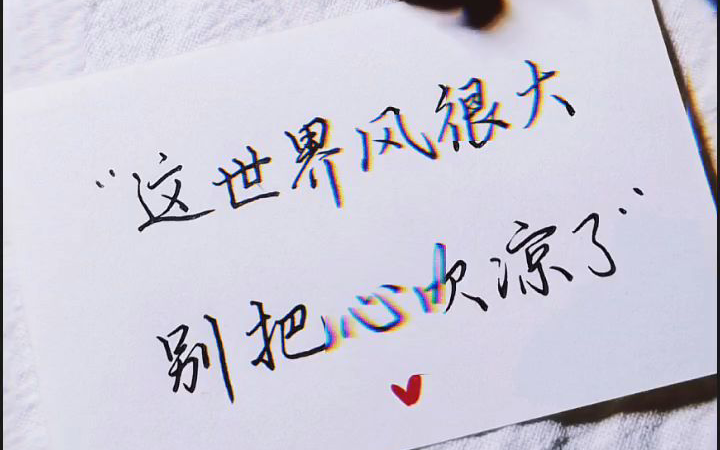 “这世界风很大
别把心吹凉了”